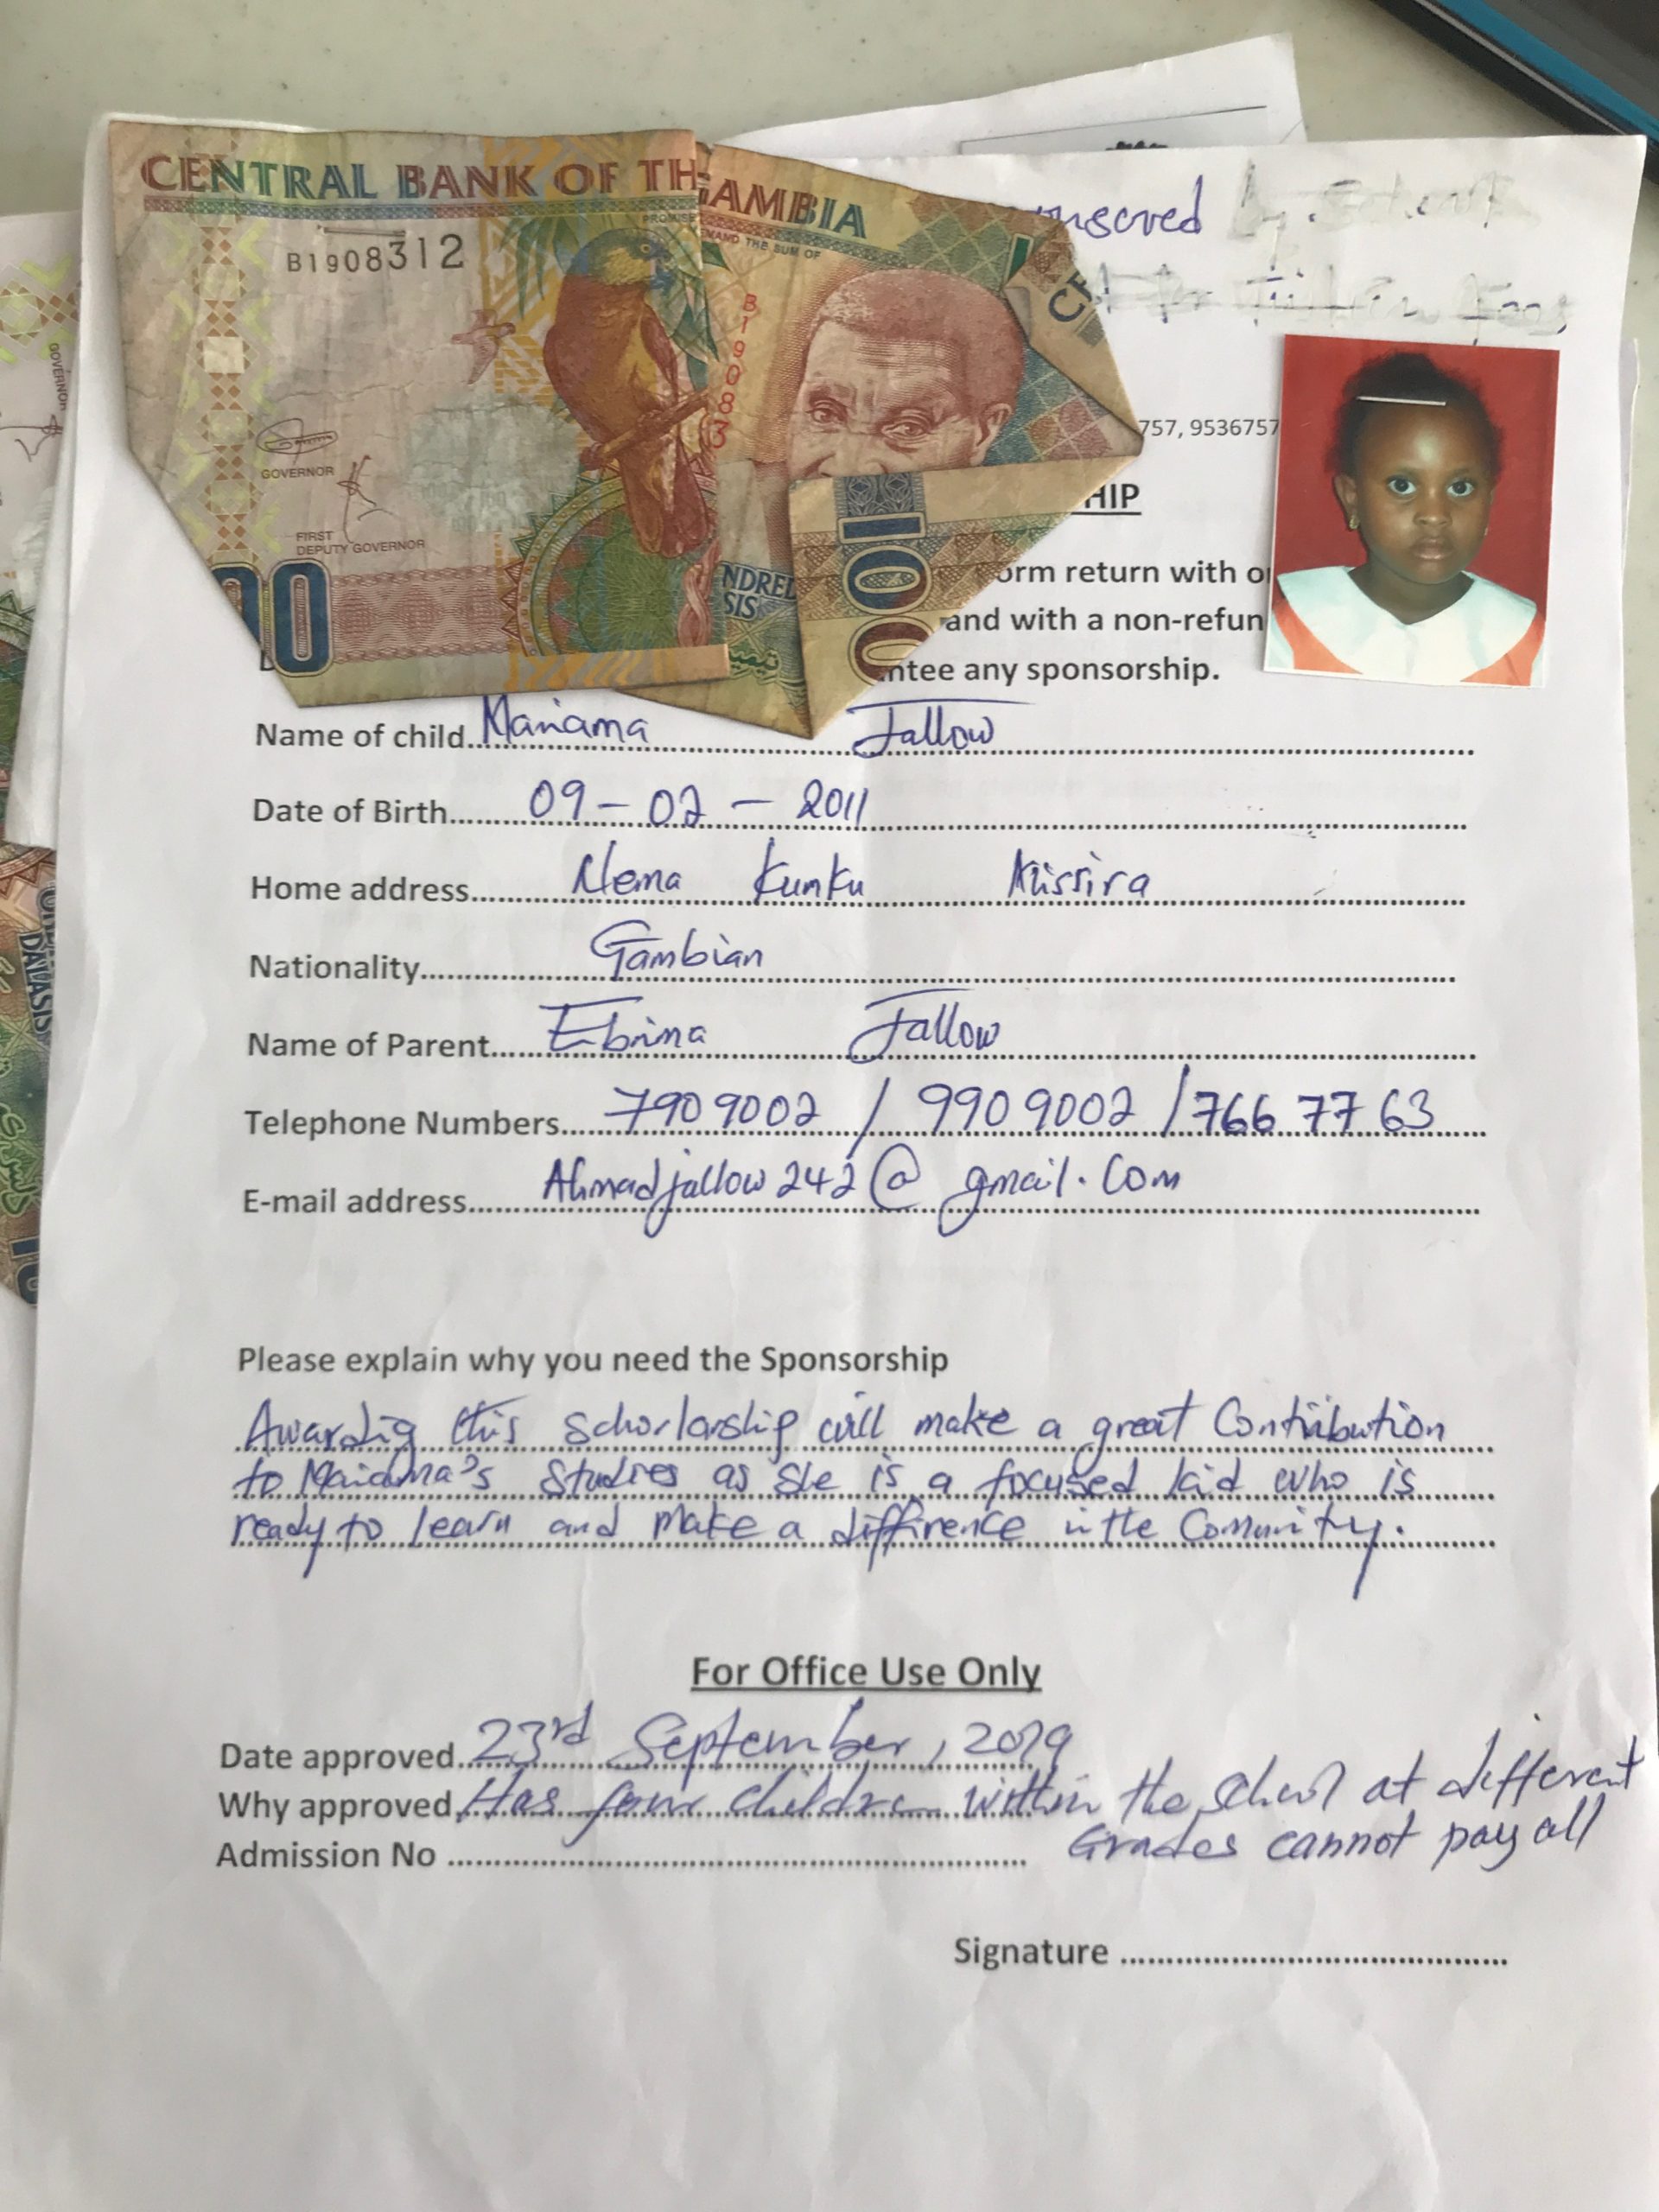 CENTRAL BANK OF TH GAMBIA
PROMISE
EMAND THE SUM OF
B1908312
B19083
GOVERNOR
FIRST
DEPUTY GOVERNOR
NDRED
SIS
00
100
GOVERNOR
DALASIS
nsored by
757, 9536757
HIP
orm return with o
and with a non-refun
ntee any sponsorship.
Name of child Mariama Jallow
Date of Birth 09-02-2011
Home address Nema Kunku Missira
Nationality Gambian
Name of Parent Ebrima Jallow
Telephone Numbers 7909002 / 9909002 / 766 77 63
E-mail address Ahmadjallow242@gmail.com
Please explain why you need the Sponsorship
Awardig this Schorlarship will make a great Contribution
to Mariama's Studies as She is a focused kid who is
ready to learn and make a diffirence in the Comunity.
For Office Use Only
Date approved 23rd September, 2019
Why approved Has four children within the school at different
Grades cannot pay all
Admission No
Signature